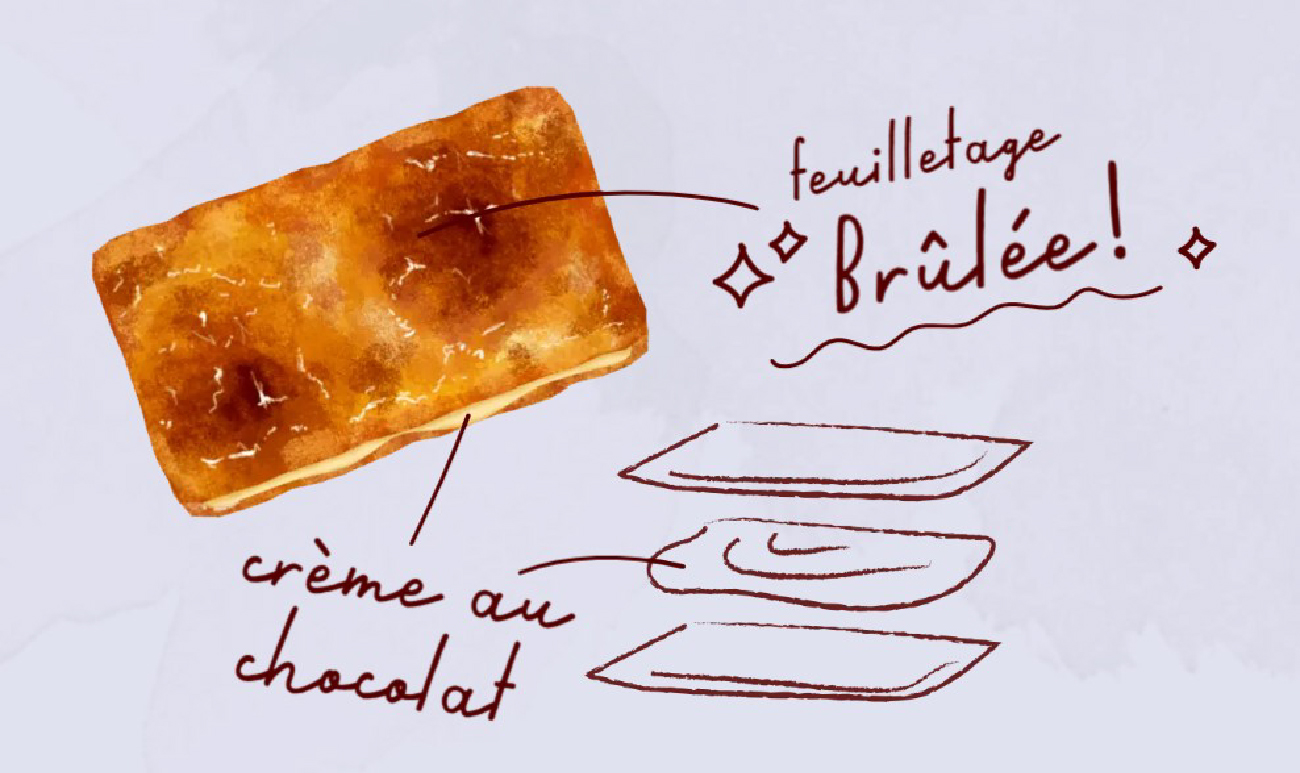 feuilletage
Brûlée!
crème au
chocolat